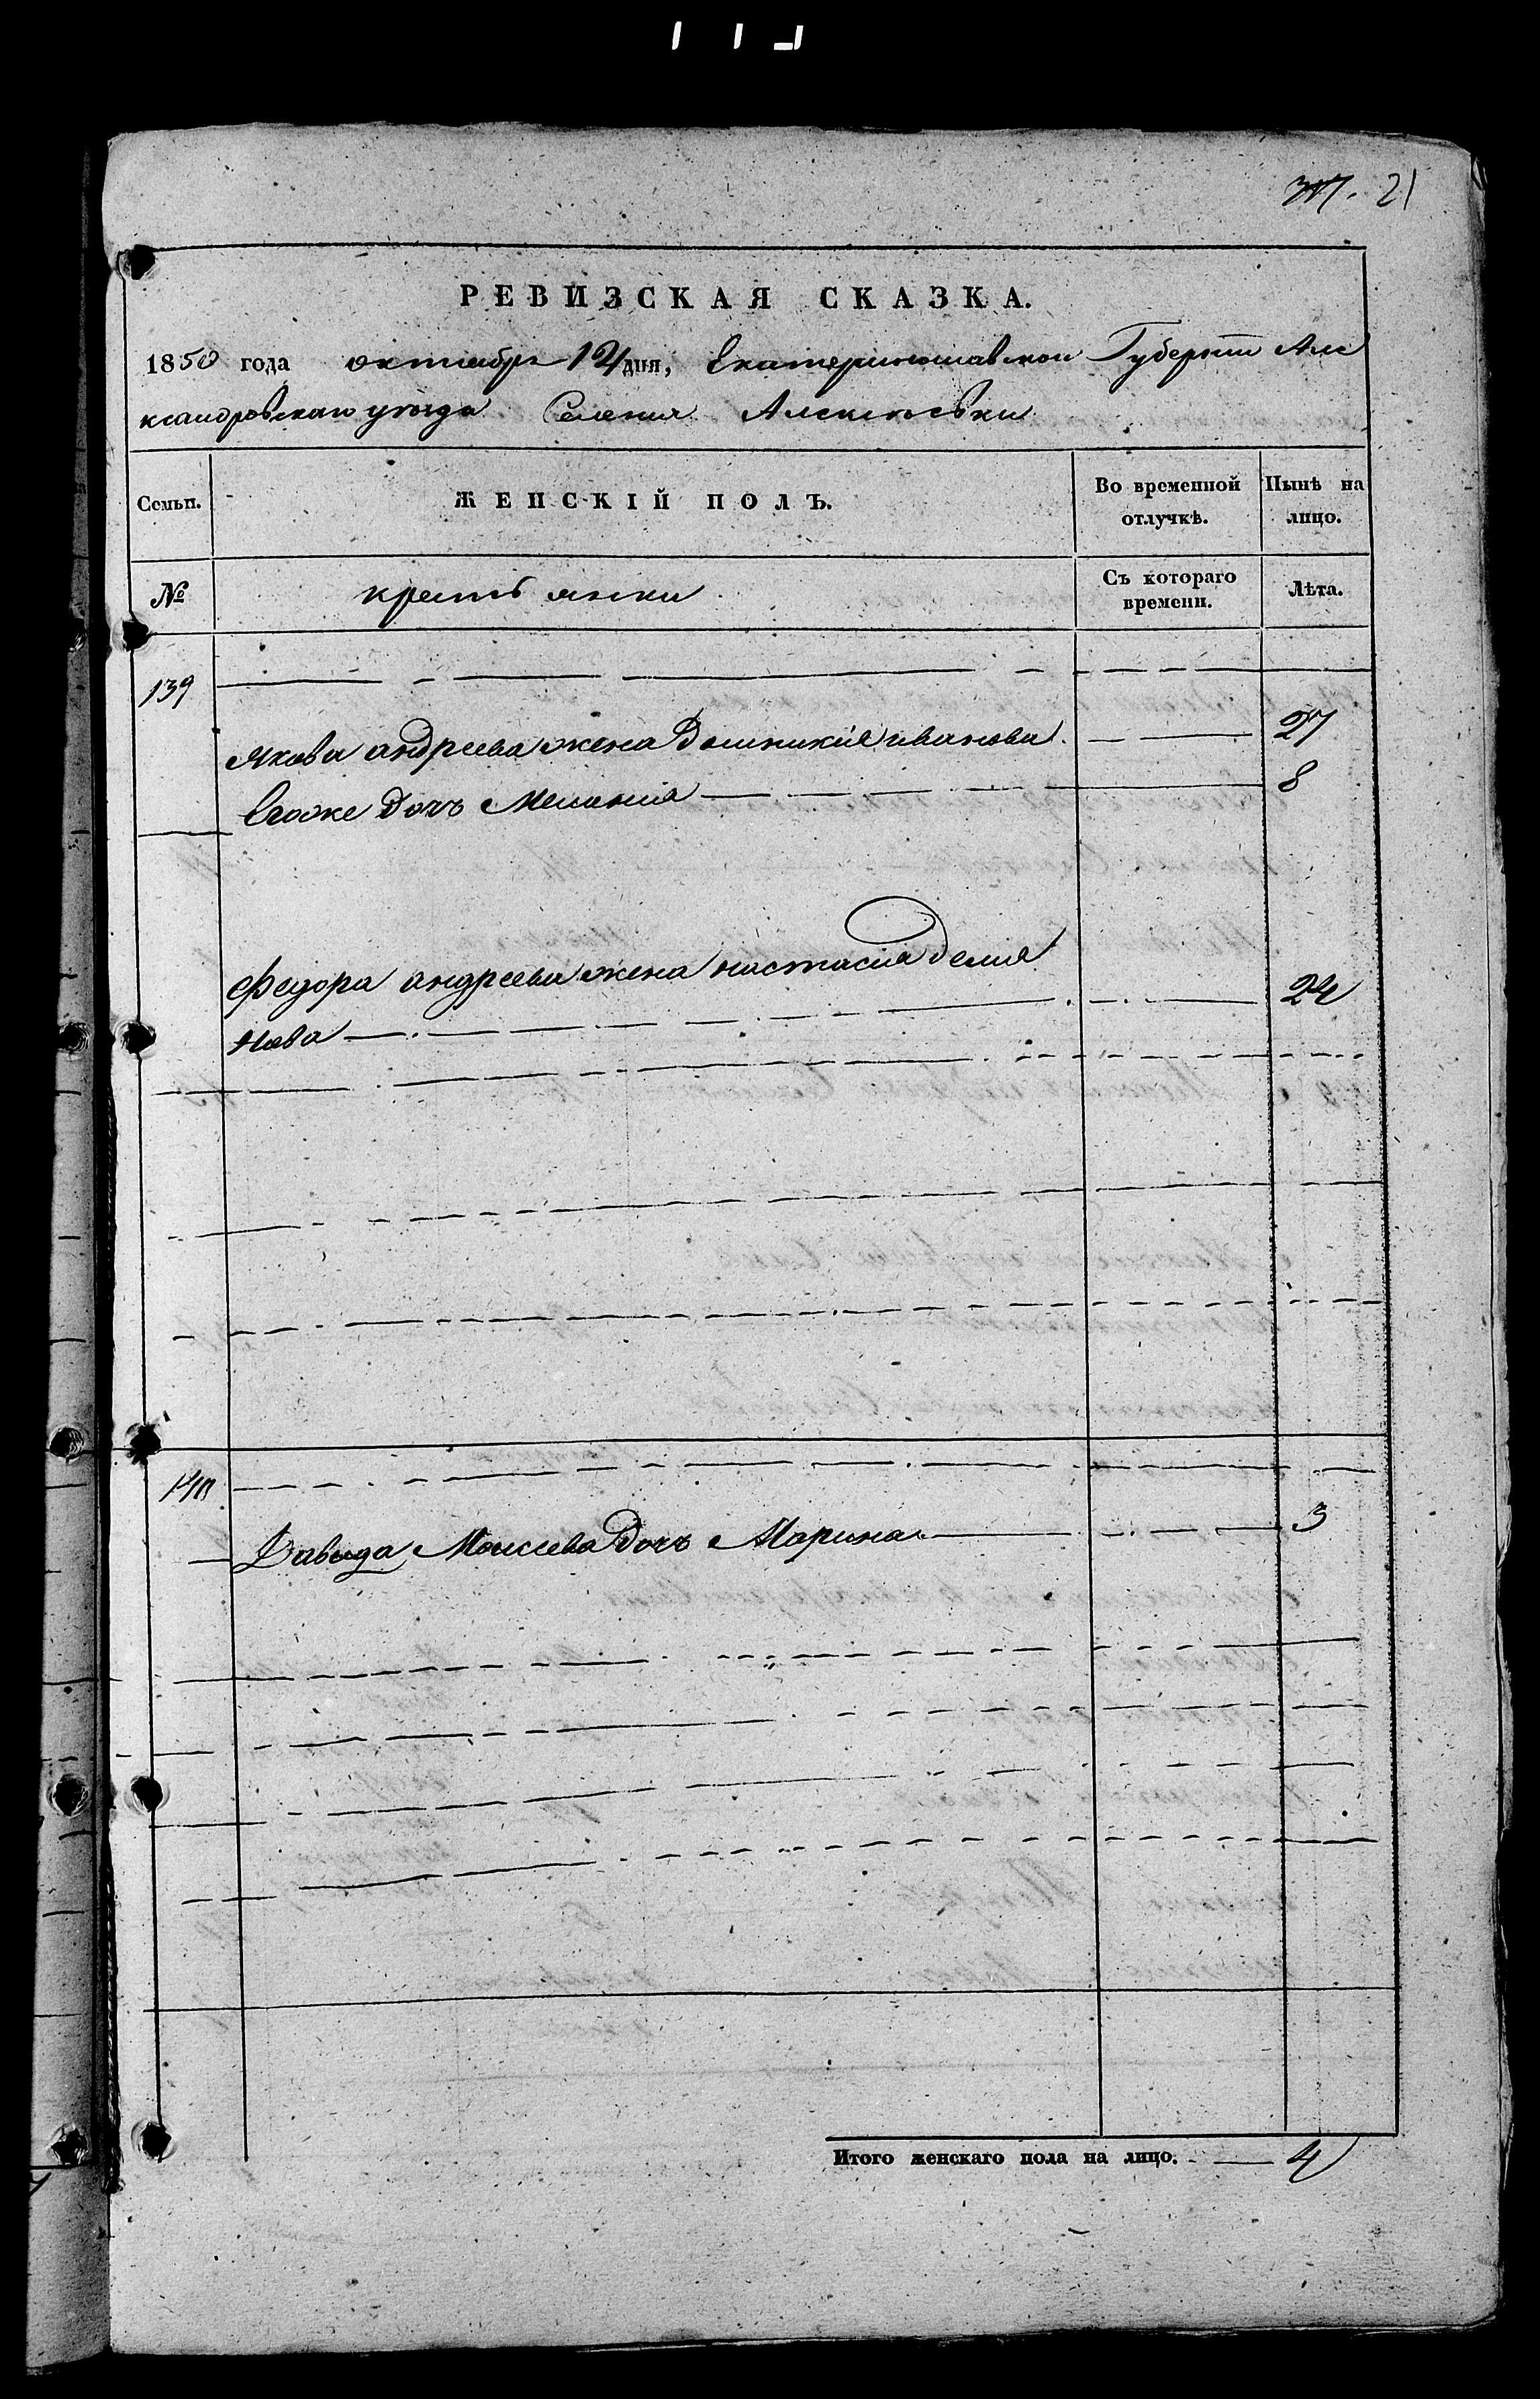 21
РЕВИЗСКАЯ СКАЗКА.
1850 года октября 12 дня, Екатеринославской Губернии Але
ксандровскаго уезда Селения Алексеевки
Семьи.
ЖЕНСКІЙ ПОЛЪ.
Во временной отлучкѣ.
Нынѣ на лицо.
№
крестьянки
Съ котораго времени.
Лѣта.
139
Якова андреева жена Домникия иванова 27
Егоже дочь Мелания 8
Федора андреева жена настасия демия
нова 24
140
Давыда Моисеева дочь Марина 3
Итого женскаго пола на лицо. 4